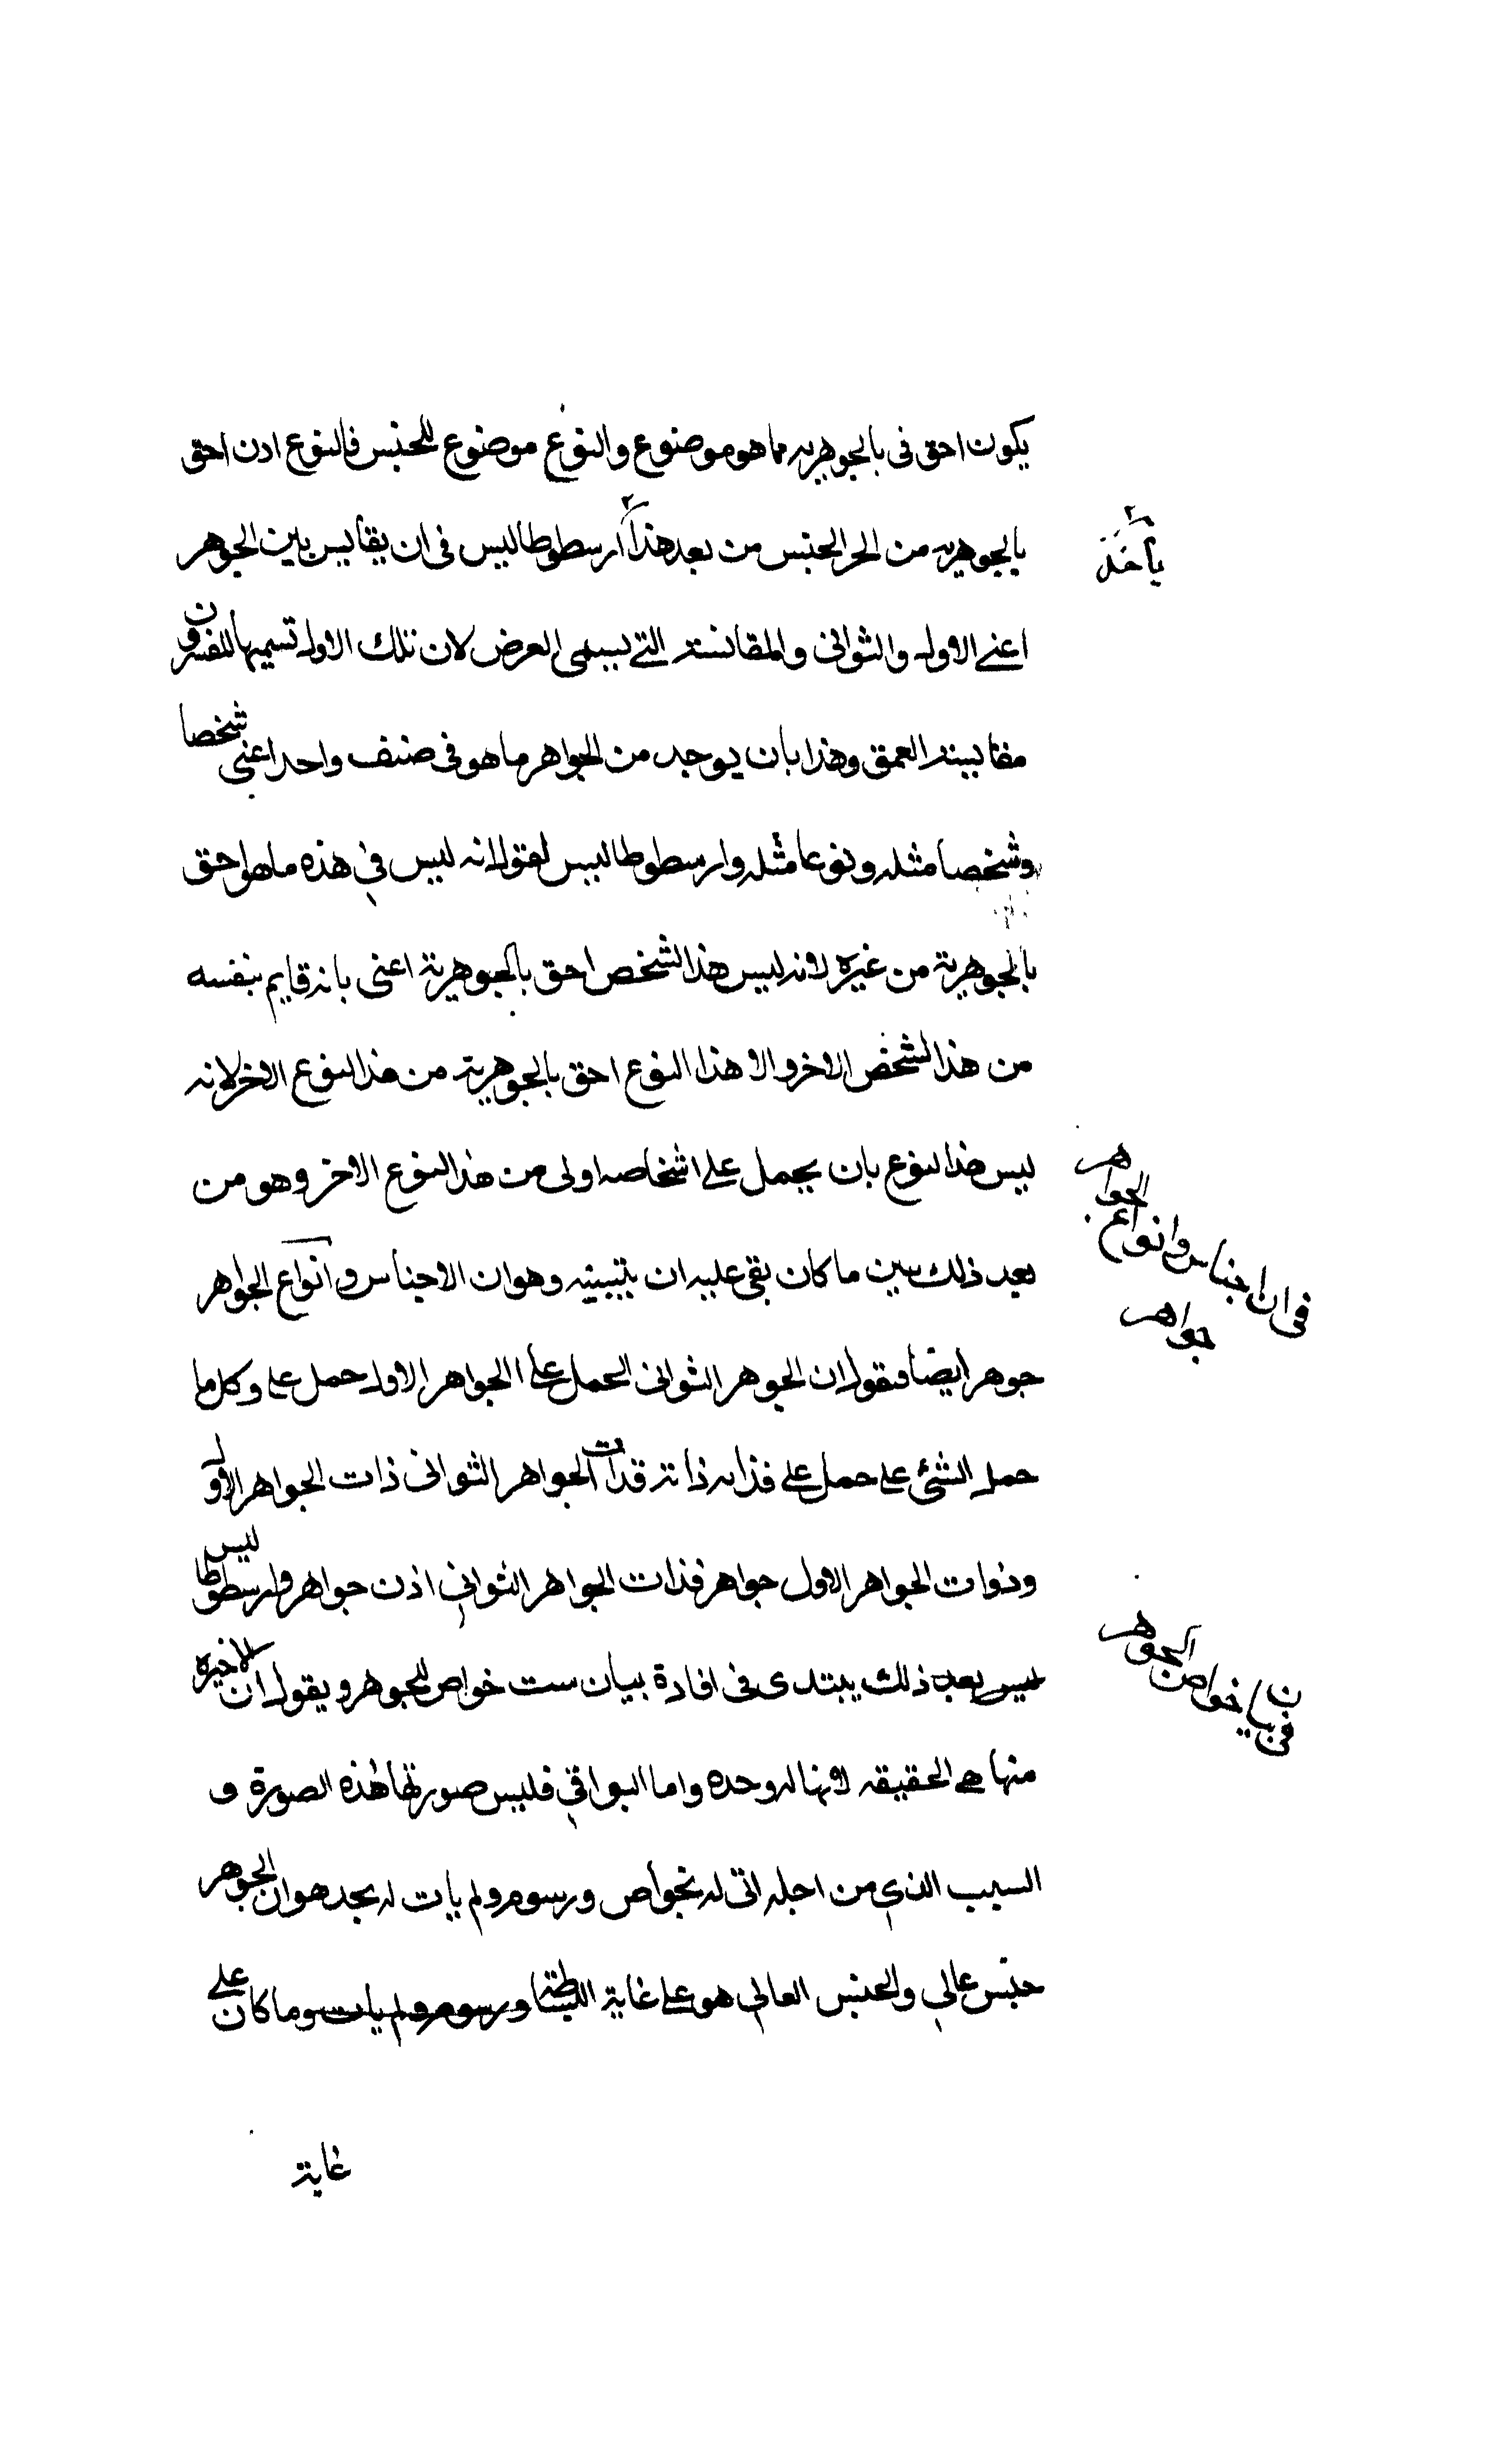 يكون احق فى بالجوهريه مما هو موضوع والنوع موضوع للجنس فالنوع اذن احق
بالجوهريه من الجنس من بعد هذا ارسطوطاليس فى ان يقايس بين الجوهر
ياخذ
اعنے الاول والثوانى والمقايسة التے يسمى العرض لان تلك الاول تسميها المفسرون
مقايسة العمق وهذا بان يوجد من الجواهر ما هو فى صنف واحد اعنى شخصا
وشخصا مثله ونوعا مثله وارسطوطاليس يقول انه ليس في هذه ما هو احق
بالجوهرية من غيره لانه ليس هذا الشخص احق بالجوهرية اعنى بانه قايم بنفسه
من هذا الشخص الاخر والا هذا النوع احق بالجوهرية من هذا النوع الاخر لانه
ليس هذا النوع بان يحمل على اشخاصه اولى من هذا النوع الاخر وهو من
فى ان اجناس وانواع الجواهر جواهر
بعد ذلك يبين ما كان بقى عليه ان يتبينه وهو ان الاجناس وانواع الجواهر
جوهر ايضا فنقول ان الجوهر الثوانى الحمل على الجواهر الاول حمل على وكل ما
حمل الشئ على حمل على فذاته ذاته فذات الجواهر الثوانى ذات الجواهر الاول
وذوات الجواهر الاول جواهر فذات الجواهر الثواني اذن جواهر وارسطوطاليس
ليس بعد ذلك يبتدى فى افادة بيان ست خواص للجوهر ويقول ان الاخيره
فى بيان خواص الجوهر
منها هے الحقيقه لانها له وحده واما البواقي فليس صورتها هذه الصورة و
السبب الذي من اجله اتى له بخواص ورسوم ولم يات له بحد هو ان الجوهر
جنس عالي والجنس العالي هو على غاية البساطة ورسوم ولم يات وما كان على
غاية